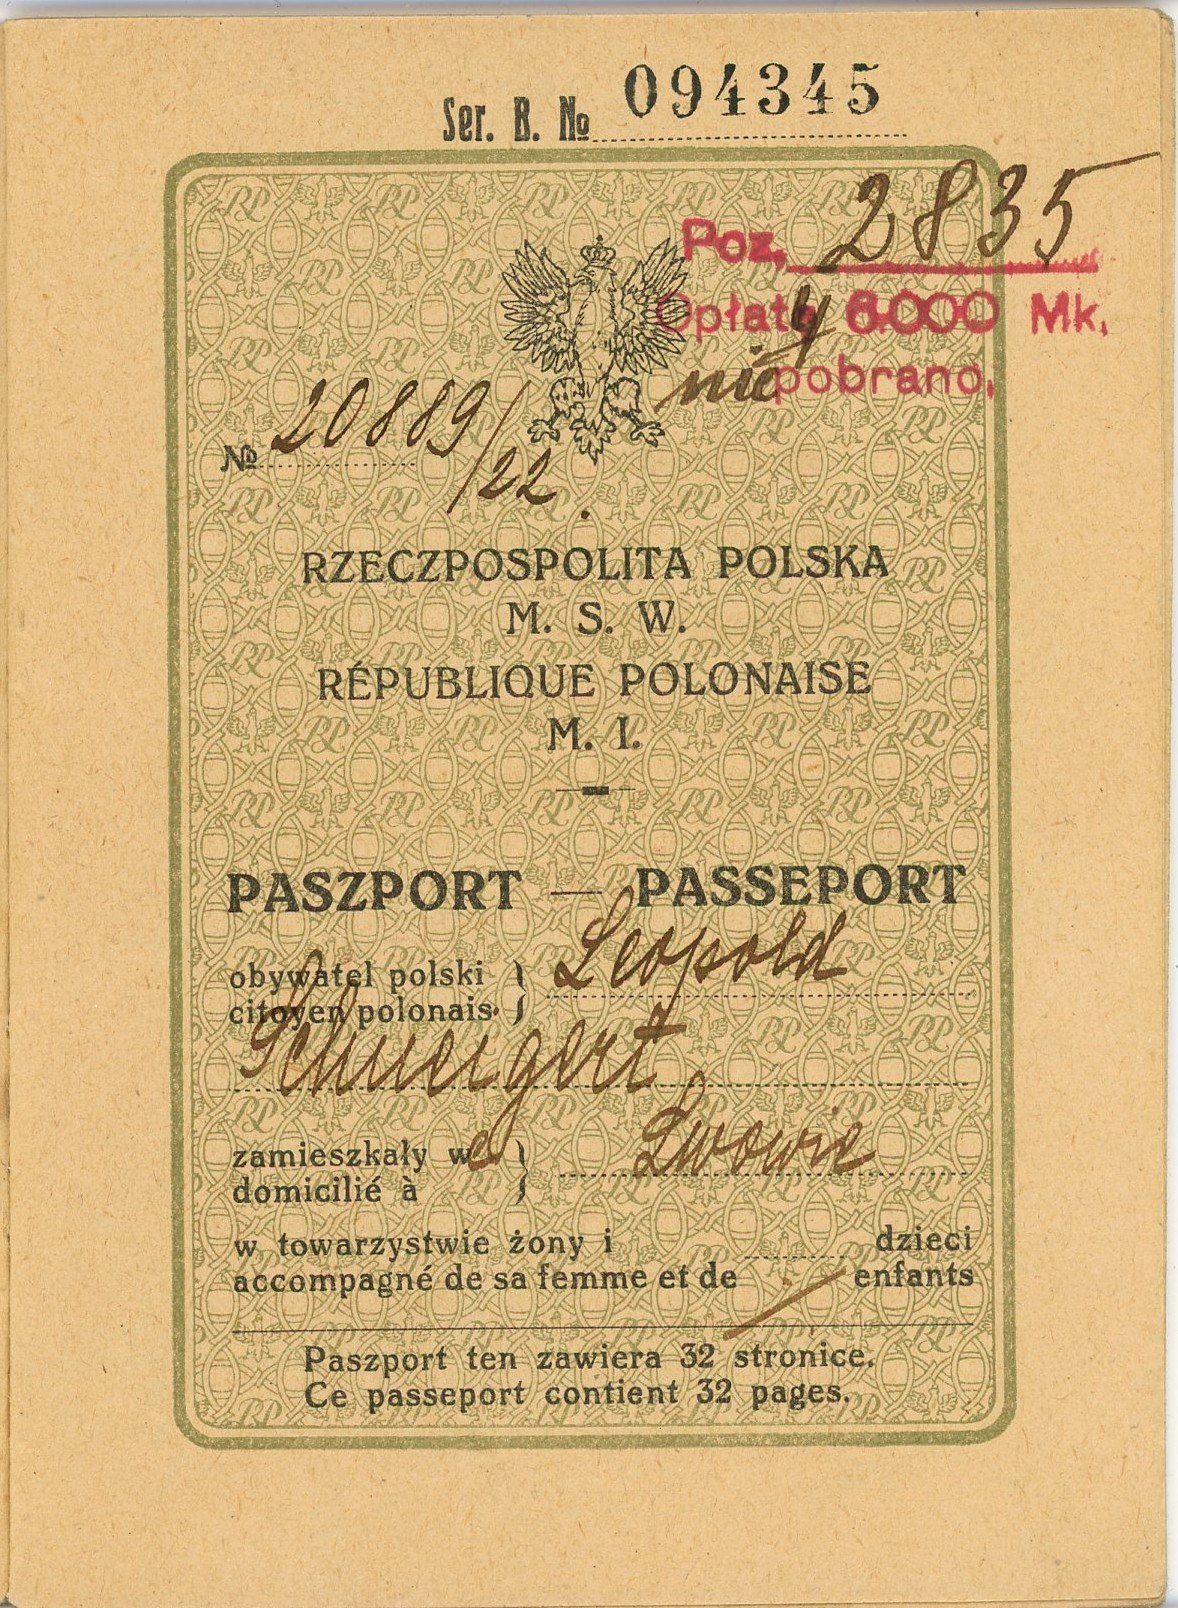 Ser. B. № 094345
Poz. 2835
Opłaty 6.000 Mk.
nie pobrano.
№ 20889/22.
RZECZPOSPOLITA POLSKA
M. S. W.
RÉPUBLIQUE POLONAISE
M. I.
PASZPORT — PASSEPORT
obywatel polski } Leopold
citoyen polonais }
zamieszkały we } Lwowie
domicilié à }
w towarzystwie żony i dzieci
accompagné de sa femme et de enfants
Paszport ten zawiera 32 stronice.
Ce passeport contient 32 pages.